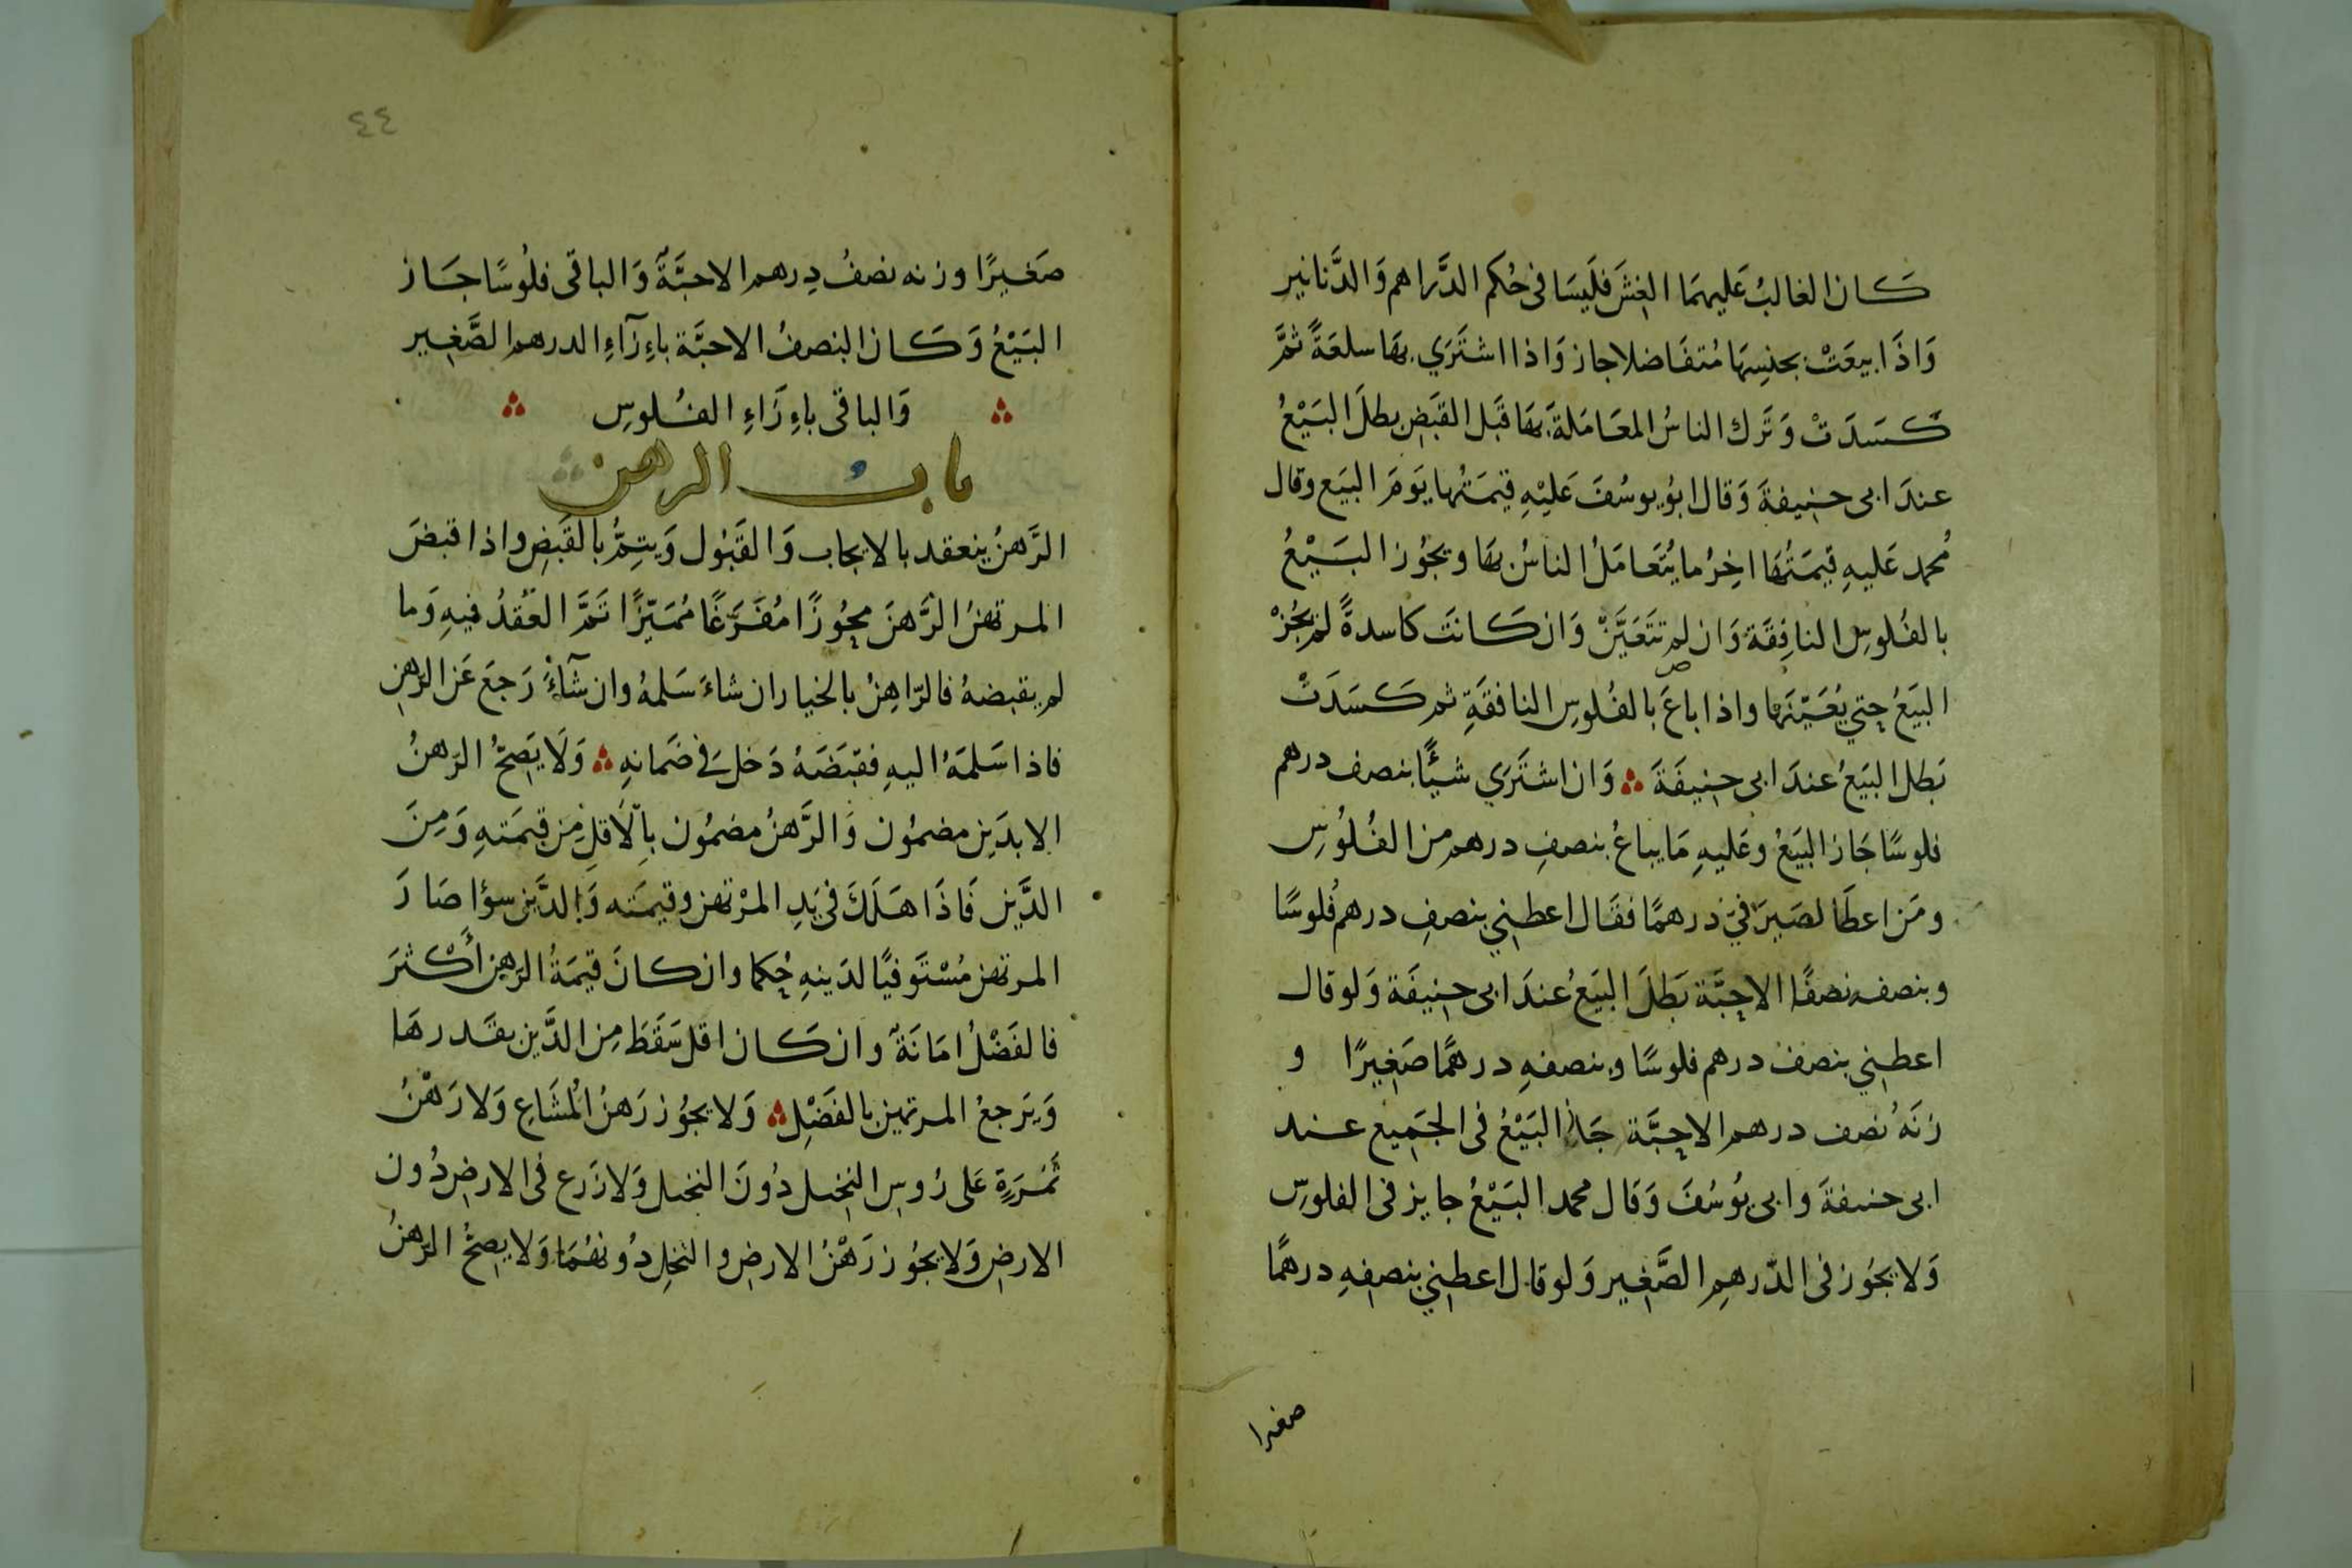 كان الغالبُ عَليهمَا الغِشَ فلَيسَا فى حُكم الدَّراهم وَالدَّنانير
وَاذَا بيعَتْ بجنسِهَا مُتفَاضلا جاز وَاذا اشتَرَي بهَا سلعَةً ثمَّ
كَسَدَتْ وَتَرك الناسُ المعَامَلةَ بهَا قَبل القبَضِ بطلَ البَيْعُ
عندَ ابى حنيفةَ وَقال ابوُ يوسُفَ عَليْهِ قيمَتُها يَومَ البيَع وقال
مُحمد عَليهِ قيمَتُهَا اخِرُ ما يُتَعامَلُ الناسُ بهَا ويجوُز البَيْعُ
بالفُلوسِ النافِقَة وَان لم تتَعَيَّنْ وَان كَانتَ كاسدةً لمَ يَجُزْ
البَيَعُ حتي يُعَيّنَهَا واذا باعَ بالفُلوسِ النافقَةِ ثم كَسَدَتْ
بَطل البَيَعُ عندَ ابى حنيفَةَ وَان اشتَرَي شيئًا بنصف درهم
فلوسًا جَاز البَيَعُ وعَليهِ مَا يباعُ بنصفِ درهم من الفُلُوُسِ
ومَن اعطَا لصَيرَافيّ درهمًا فقَال اعطِني بنصفِ درهم فُلوسًا
وبنصفه نصفًا الاحبَّة بَطلَ البَيَعُ عندَ ابى حنيفَة وَلو قال
اعطني بنصف درهم فلوسًا وبنصفهِ درهمًا صَغِيرًا و
زنَهُ نُصف درهم الاحِبَّة جَاز البَيْعُ فى الجَميع عند
ابى حنيفةَ وابى يوُسُفَ وَقال محمد البَيْعُ جايز فى الفلوسِ
وَلا يجوُز فى الدّرهمِ الصَّغِير وَلو قال اعطِني بنصفِهِ درهمًا
صغيرا
٤٤
صَغيرًا وزنه نصفُ دِرهم الاحبَّةً وَالباقى فلُوسًا جَاز
البَيْعُ وَكَان النصفُ الاحبَّة باءِزآءِ الدرهم الصَّغِير
وَالباقى باءِزَاءِ الفُلوسِ
باب الرهن
الرَّهنُ ينعقد بالايجاب وَالقَبوُل وَيتِمُّ بالقَبَضِ واذا قبضَ
المرتهنُ الرَّهنَ محوُزًا مُفَرَغًا مُمَيّزًا تَمَّ العَقدُ فيهِ وَما
لم يقبضهُ فالرّاهِنُ بالخيار ان شاءَ سَلمهُ وان شآءَ رَجعَ عَن الرهنِ
فاذا سَلمَهُ اليهِ فقبَضَهُ دَخلَ فى ضَمانهِ وَلَا يَصِحُّ الرَهنُ
الا بدَينٍ مضموُن وَالرَّهنُ مضموُن بالَاقلِ مِن قيمَتهِ وَمِنَ
الدَّيْنِ فَاذَا هَلَكَ فى يَدِ المرْتهن وقيمَته وَالدَّين سوًا صَارَ
المرتهن مُسْتَوفيًا لدَينهِ حُكما وان كانَ قيمَةُ الرَهنِ أَكْثرَ
فالفَضْلُ امَانَةٌ وان كَان اقل سَقَطَ مِن الدَّين بقَدرهَا
وَيَرجعُ المرتهن بالفَضْلِ وَلا يجوُز رَهنُ المُشَاعِ وَلا رَهْنُ
ثَمَرَةٍ عَلى رُوسِ النخل دُونَ النخل وَلا زَرع فى الارضِ دُون
الارضِ وَلا يجوُز رَهْنُ الارضِ والنخلِ دُونهُمَا وَلا يصِحُّ الرَهنُ